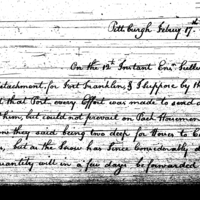 Pittburgh Febry 17th
On the 12th Instant Ens:
etachment, for Fort Franklin, & I suppose by th
d that Post, every Effort was made to send
him, but could not prevail on Pack Horsemen
they said being two deep, for Horses to
but as the Snow has since considerably
uantity will in a few days be forwarded